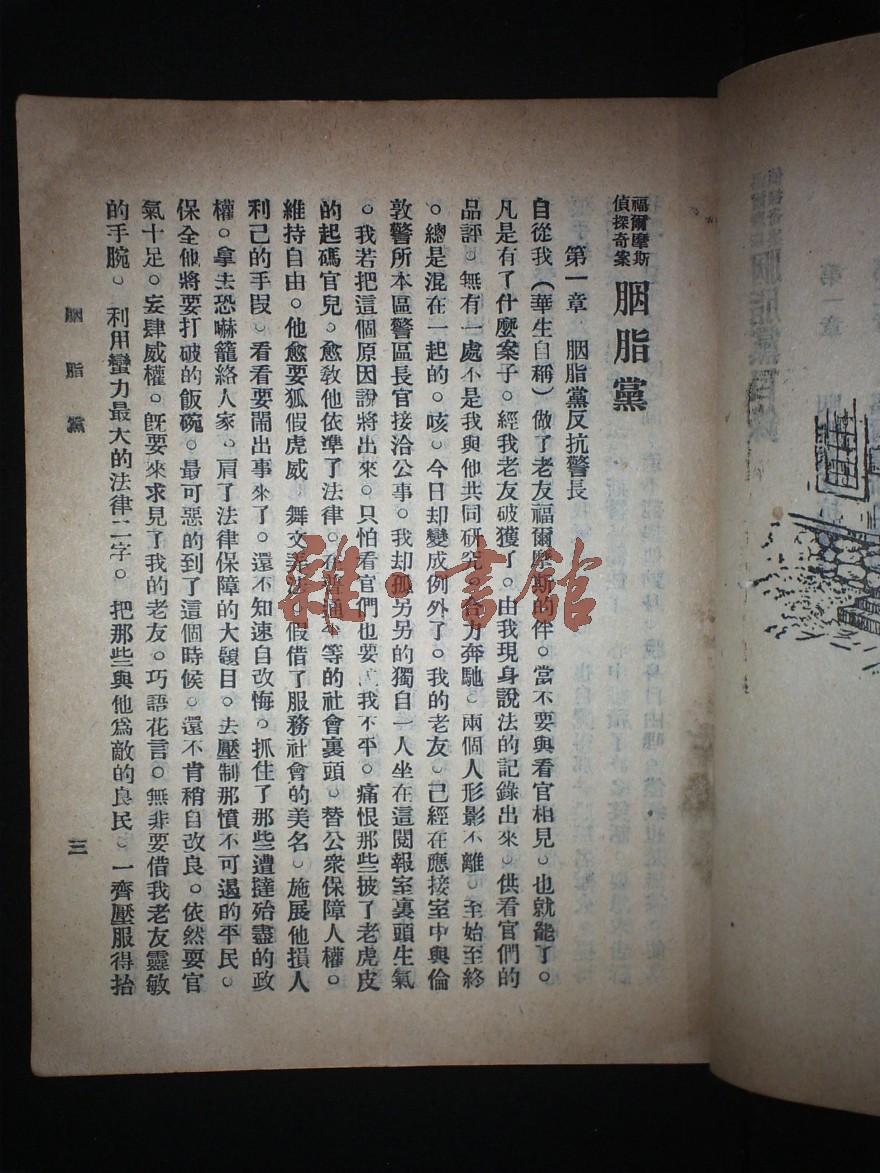 福爾摩斯
偵探奇案
胭脂黨
第一章 胭脂黨反抗警長
自從我(華生自稱)做了老友福爾摩斯的伴。當不要與看官相見。也就能了。
凡是有了什麼案子。經我老友破獲了。由我現身說法的記錄出來。供看官們的
品評。無有一處不是我與他共同研究。合力奔馳。兩個人形影不離。至始至終
。總是混在一起的。咳。今日却變成例外了。我的老友。已經在應接室中與倫
敦警所本區警區長官接洽公事。我却孤另另的獨自一人坐在這閱報室裏頭生氣
。我若把這個原因說將出來。只怕看官們也要 我不平。痛恨那些披了老虎皮
的起碼官兒。愈敎他依準了法律。在普通平等的社會裏頭。替公衆保障人權。
維持自由。他愈要狐假虎威。舞文弄法。假借了服務社會的美名。施展他損人
利己的手段。看看要鬧出事來了。還不知速自改悔。抓住了那些遭撻殆盡的政
權。拿去恐嚇籠絡人家。肩了法律保障的大題目。去壓制那憤不可遏的平民。
保全他將要打破的飯碗。最可惡的到了這個時候。還不肯稍自改良。依然耍官
氣十足。妄肆威權。旣要來求見了我的老友。巧語花言。無非要借我老友靈敏
的手腕。利用蠻力最大的法律二字。把那些與他爲敵的良民。一齊壓服得抬
胭脂黨
三
雜·書館
第一章